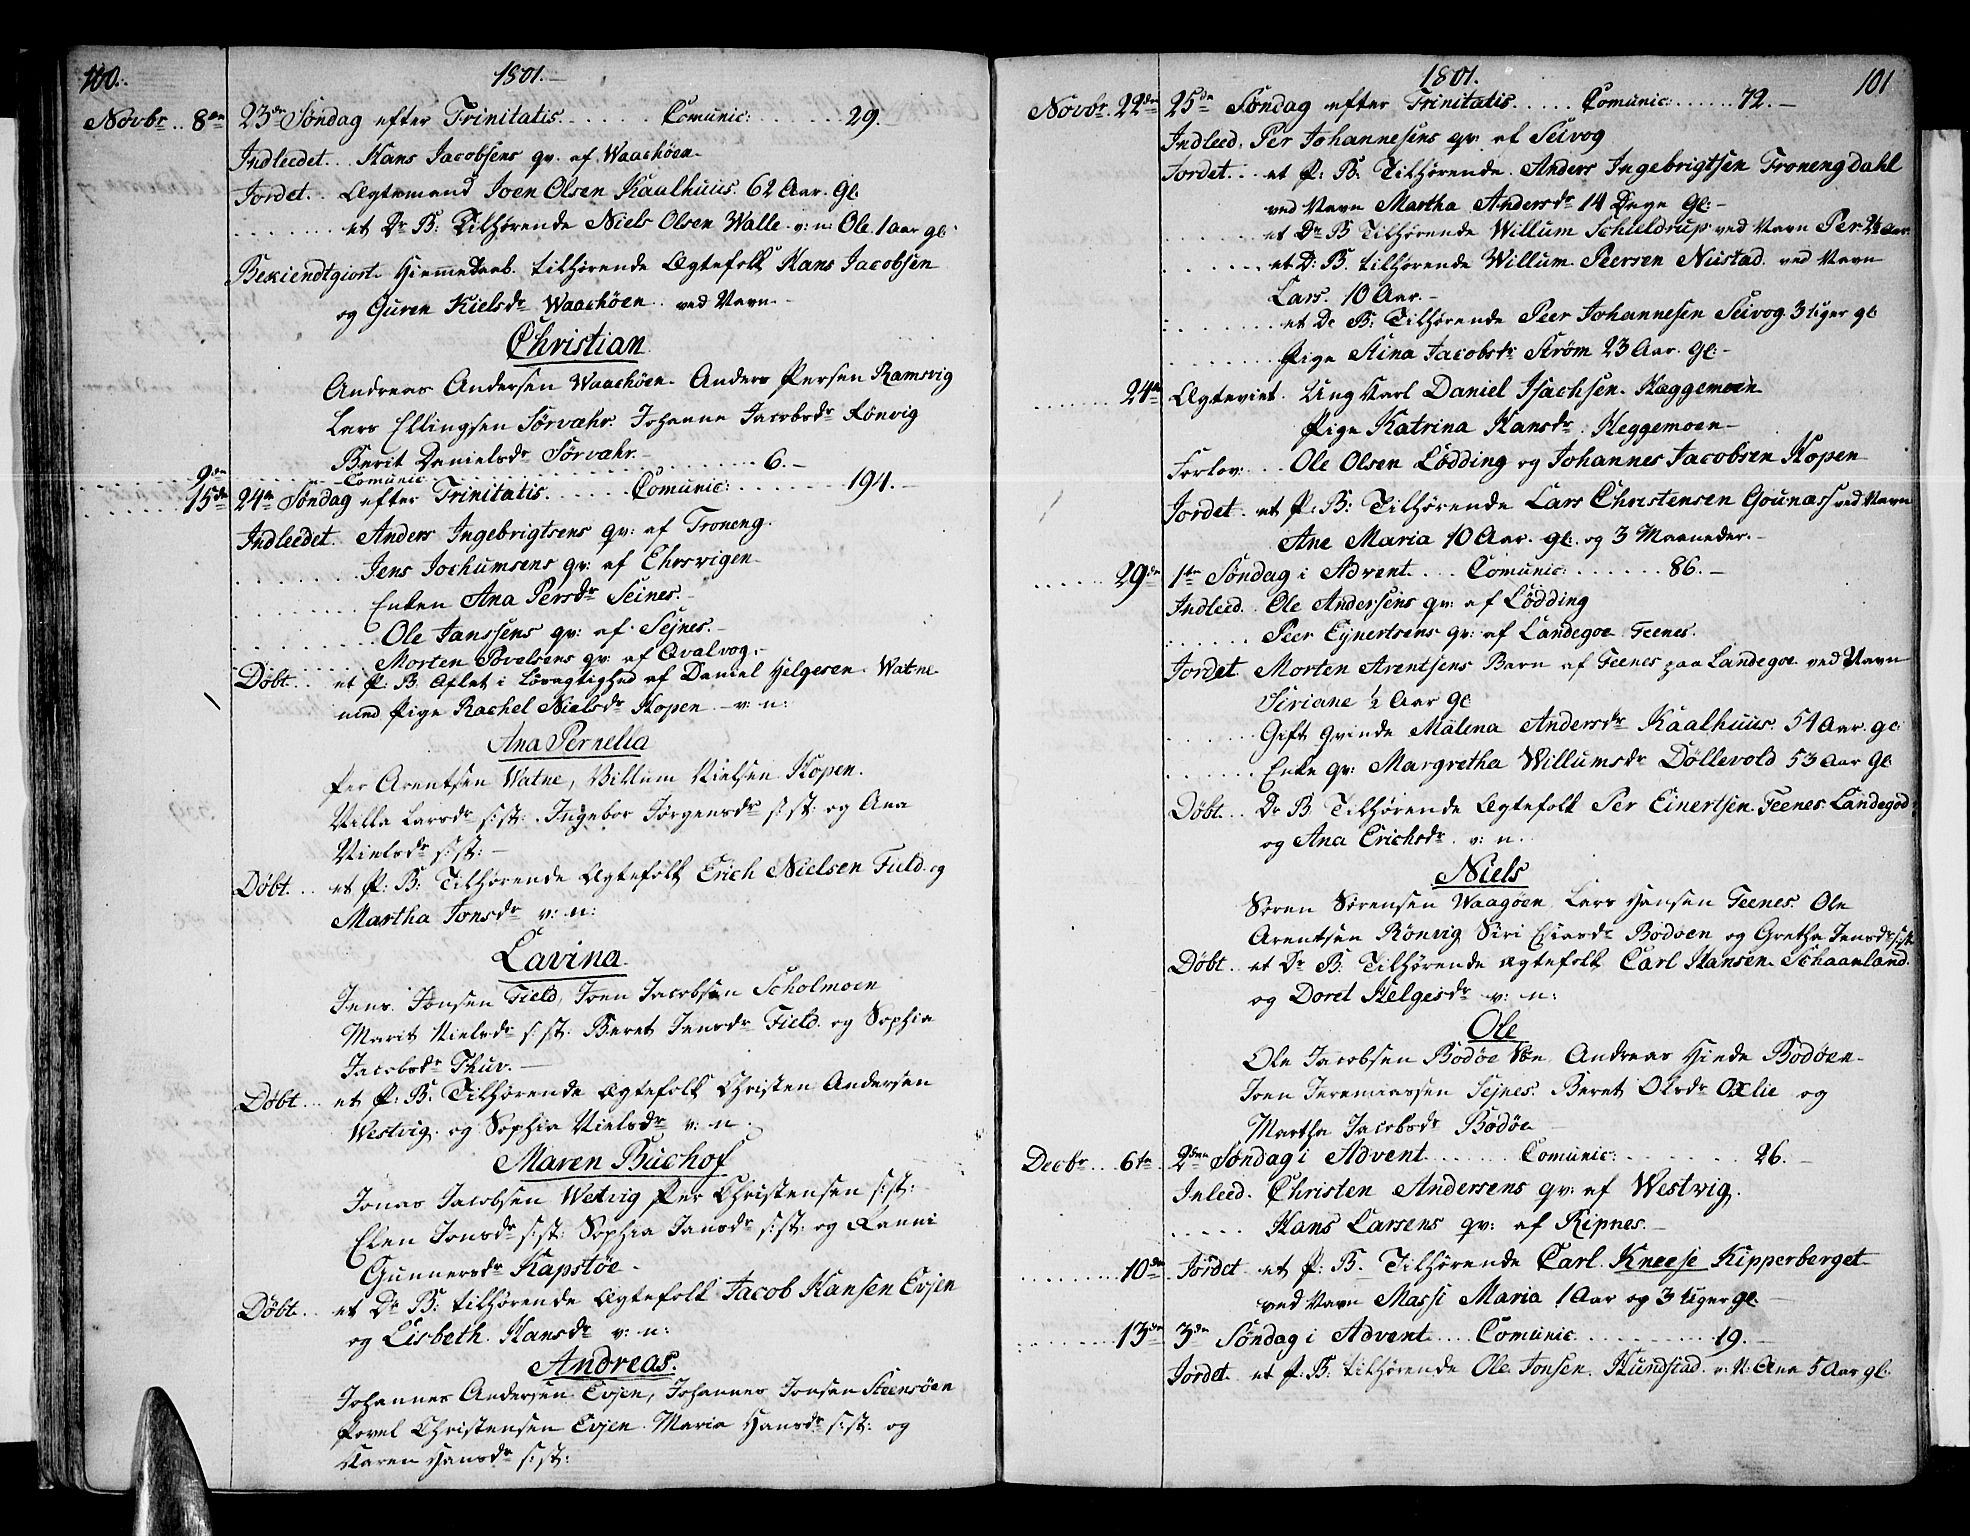 100.
1801.
Novbr .. 8de 23de Søndag efter Trinitatis ...... Comunic: ...... 29.
Indleedet .. Hans Jacobsens qv: af Waachöen
Jordet .. Ægtemand Joen Olsen Kaalhuus. 62 Aar. gl:
et Dr B: Tilhørende Niels Olsen Walle v: n: Ole. 1 aar gl:
Bekiendtgiort Hiemmedaab. tilhørende Ægtefolk Hans Jacobsen
og Guren Kielsdr Waachöen .. ved Navn
Christian
Andreas Andersen Waachöen. Anders Persen Ramsvig
Lars Ellingsen Sörvæhr. Johanna Jacobsdr Rönvig
Berit Danielsdr Sörvæhr.
9de Comunic ...... 6.
15de 24de Søndag efter Trinitatis ...... Comunic: ...... 194.
Indleedet. Anders Ingebrigtsens qv: af Troneng.
Jens Jochumsens qv: af Ehrsvigen
Enken Ana Persdr Seines.
Ole Janssens qv: af Sejnes.
Morten Povelsens qv: af Qvalvog.
Døbt .. et P: B. Aflet i Løsagtighed af Daniel Helgesen Watne
med Pige Rachel Nielsdr Kopen v: n:
Ana Pernella
Per Arentsen Watne, Villum Nielsen Kopen.
Nille Larsdr s: st: Ingebor Jørgensdr s: st: og Ana
Nielsdr s: st:
Døbt .. et P: B: Tilhørende Ægtefolk Erich Nielsen Field og
Martha Jonsdr v: n:
Lavina
Jens Jonsen Field, Joen Jacobsen Scholmoen
Marit Nielsdr s: st: Beret Jensdr Field og Sophia
Jacobsdr Thuv.
Døbt .. et P: B: Tilhørende Ægtefolk Christen Andersen
Westvig. og Sophia Nielsdr v: n:
Maren Buchof
Jonas Jacobsen Wetvig Per Christensen s: st:
Elen Jonsdr s: st: Sophia Jansdr s: st: og Ranni
Gunnersdr Kapstöe
Døbt .. et Dr B: tilhørende Ægtefolk Jacob Hansen Evjen
og Lisbeth Hansdr v: n:
Andreas.
Johannes Andersen Evjen, Johannes Jonsen Steensöen
Povel Christensen Evjen. Maria Hansdr s: st: og
Karen Hansdr s: st:
1801.
101
Novbr. 22de 25de Søndag efter Trinitatis ...... Comunic: ...... 72.
Indleed. Per Johannesens qv: af Seivog
Jordet .. et P: B: Tilhørende Anders Ingebrigtsen Tronengdahl
ved Navn Martha Andersdr 14 Dage gl:
et Dr B Tilhørende Willum Schieldrup ved Navn Per 2½ Aar.
et D: B. tilhørende Willum Peersen Nustad. ved Navn
Lars. 10 Aar.
et Dr B: Tilhørende Peer Johannesen Seivog 3 Uger gl:
Pige Stina Jacobsdr Ström 23 Aar. gl:
24de Ægteviet. Ung Karl Daniel Isachsen. Hæggemoen
Pige Katrina Hansdr Heggemoen
Forlov: .. Ole Olsen Lödding og Johannes Jacobsen Kopen
Jordet .. et P: B: Tilhørende Lars Christensen Gounæss ved Navn
Ane Maria 10 Aar. gl: og 3 Maaneder.
29de 1te Søndag i Advent .... Comunic: ...... 86.
Indleed. Ole Andersens qv: af Lödding
Peer Eynertsens qv: af Landegoe Feenes.
Jordet Morten Arentsens Barn af Feenes paa Landegoe ved Navn
Siriane ½ Aar gl:
Gift qvinde Malena Andersdr Kaalhuus. 54 Aar. gl:
Enke qv: Margretha Willumsdr Döllevold 53 Aar gl:
Døbt .. Dr B Tilhørende Ægtefolk Per Einertsen Feenes Landegod
og Ana Erichsdr v: n:
Niels
Søren Sörensen Waagöen Lars Hansen Feenes. Ole
Arentsen Rönvig Siri Bodöen og Gretha Jensdr s: st:
Døbt .. et Dr B: Tilhørende Ægtefolk Carl Hansen Schaanland.
og Doret Helgesdr v: n:
Ole
Ole Jacobsen Bodöe Andreas Hinde Bodöen
Joen Jeremiassen Sejnes. Beret Olsdr Oxlie og
Martha Jacobsdr Bodöe
Decbr ... 6te 2den Søndag i Advent ...... Comunic: ...... 26.
Inleed. Christen Andersens qv: af Westvig.
Hans Larsens qv: af Ripnes.
10de Jordet et P: B. Tilhørende Carl Kneese Kipperberget
ved Navn Massi Maria 1 Aar og 3 Uger gl.
13de 3de Søndag i Advent .... Comunic ...... 19.
Jordet. et P: B: tilhørende Ole Jonsen. Hundstad. v: N: Ana 5 Aar gl: